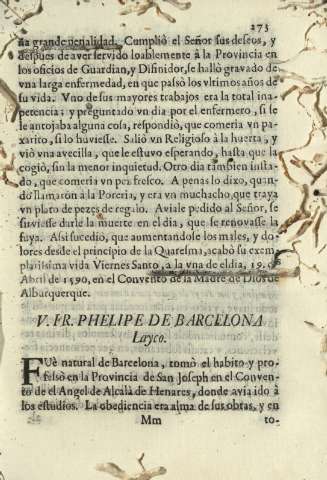 273
ña grande uenialidad. Cumpliò el Señor sus deseos, y
despues de aver servido loablemente à la Provincia en
los oficios de Guardian, y Difinidor, se hallò gravado de
vna larga enfermedad, en que passò los vltimos años de
su vida. Vno de sus mayores trabajos era la total ina-
petencia; y preguntado vn dia por el enfermero, si se
le antojaba alguna cosa, respondiò, que comeria vn pa-
xarito, si lo huviesse. Saliò vn Religioso à la huerta, y
viò vna avecilla, que le estuvo esperando, hasta que la
cogiò, sin la menor inquietud. Otro dia tambien insta-
do, que comeria vn pez fresco. A penas lo dixo, quan-
do llamaron à la Porteria, y era vn muchacho, que traya
vn plato de pezes de regalo. Aviale pedido al Señor, se
sirviesse darle la muerte en el dia, que se renovasse la
suya. Assi sucediò, que aumentandole los males, y do-
lores desde el principio de la Quaresma, acabò su exem-
plarissima vida Viernes Santo, à la vna de el dia, 19. de
Abril de 1590. en el Convento de la Madre de Dios de
Alburquerque.
V. FR. PHELIPE DE BARCELONA
Layco.
FUè natural de Barcelona, tomò el habito y pro-
fessò en la Provincia de San Joseph en el Conven-
to de el Angel de Alcalà de Henares, donde avia ido à
los estudios. La obediencia era alma de sus obras, y en
Mm to-